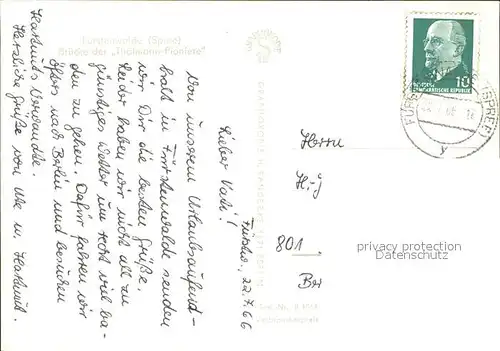 Fürstenwalde (Spree)
Brücke der „Thälmann-Pioniere"
Fürstenw., 22.7.66
Lieber Vati!
Von unserem Urlaubsaufent-
halt in Fürstenwalde senden
wir Dir die besten Grüße.
Leider haben wir nicht all zu
günstiges Wetter um recht viel ba-
den zu gehen. Dafür fahren wir
öfters nach Berlin und besuchen
Hartmuts Verwandte.
Herzliche Grüße von Ute u. Hartmut.
10
DEUTSCHE DEMOKRATISCHE REPUBLIK
FÜRSTENWALDE (SPREE)
Herrn
H.-J
801
Ber
privacy protection
Datenschutz